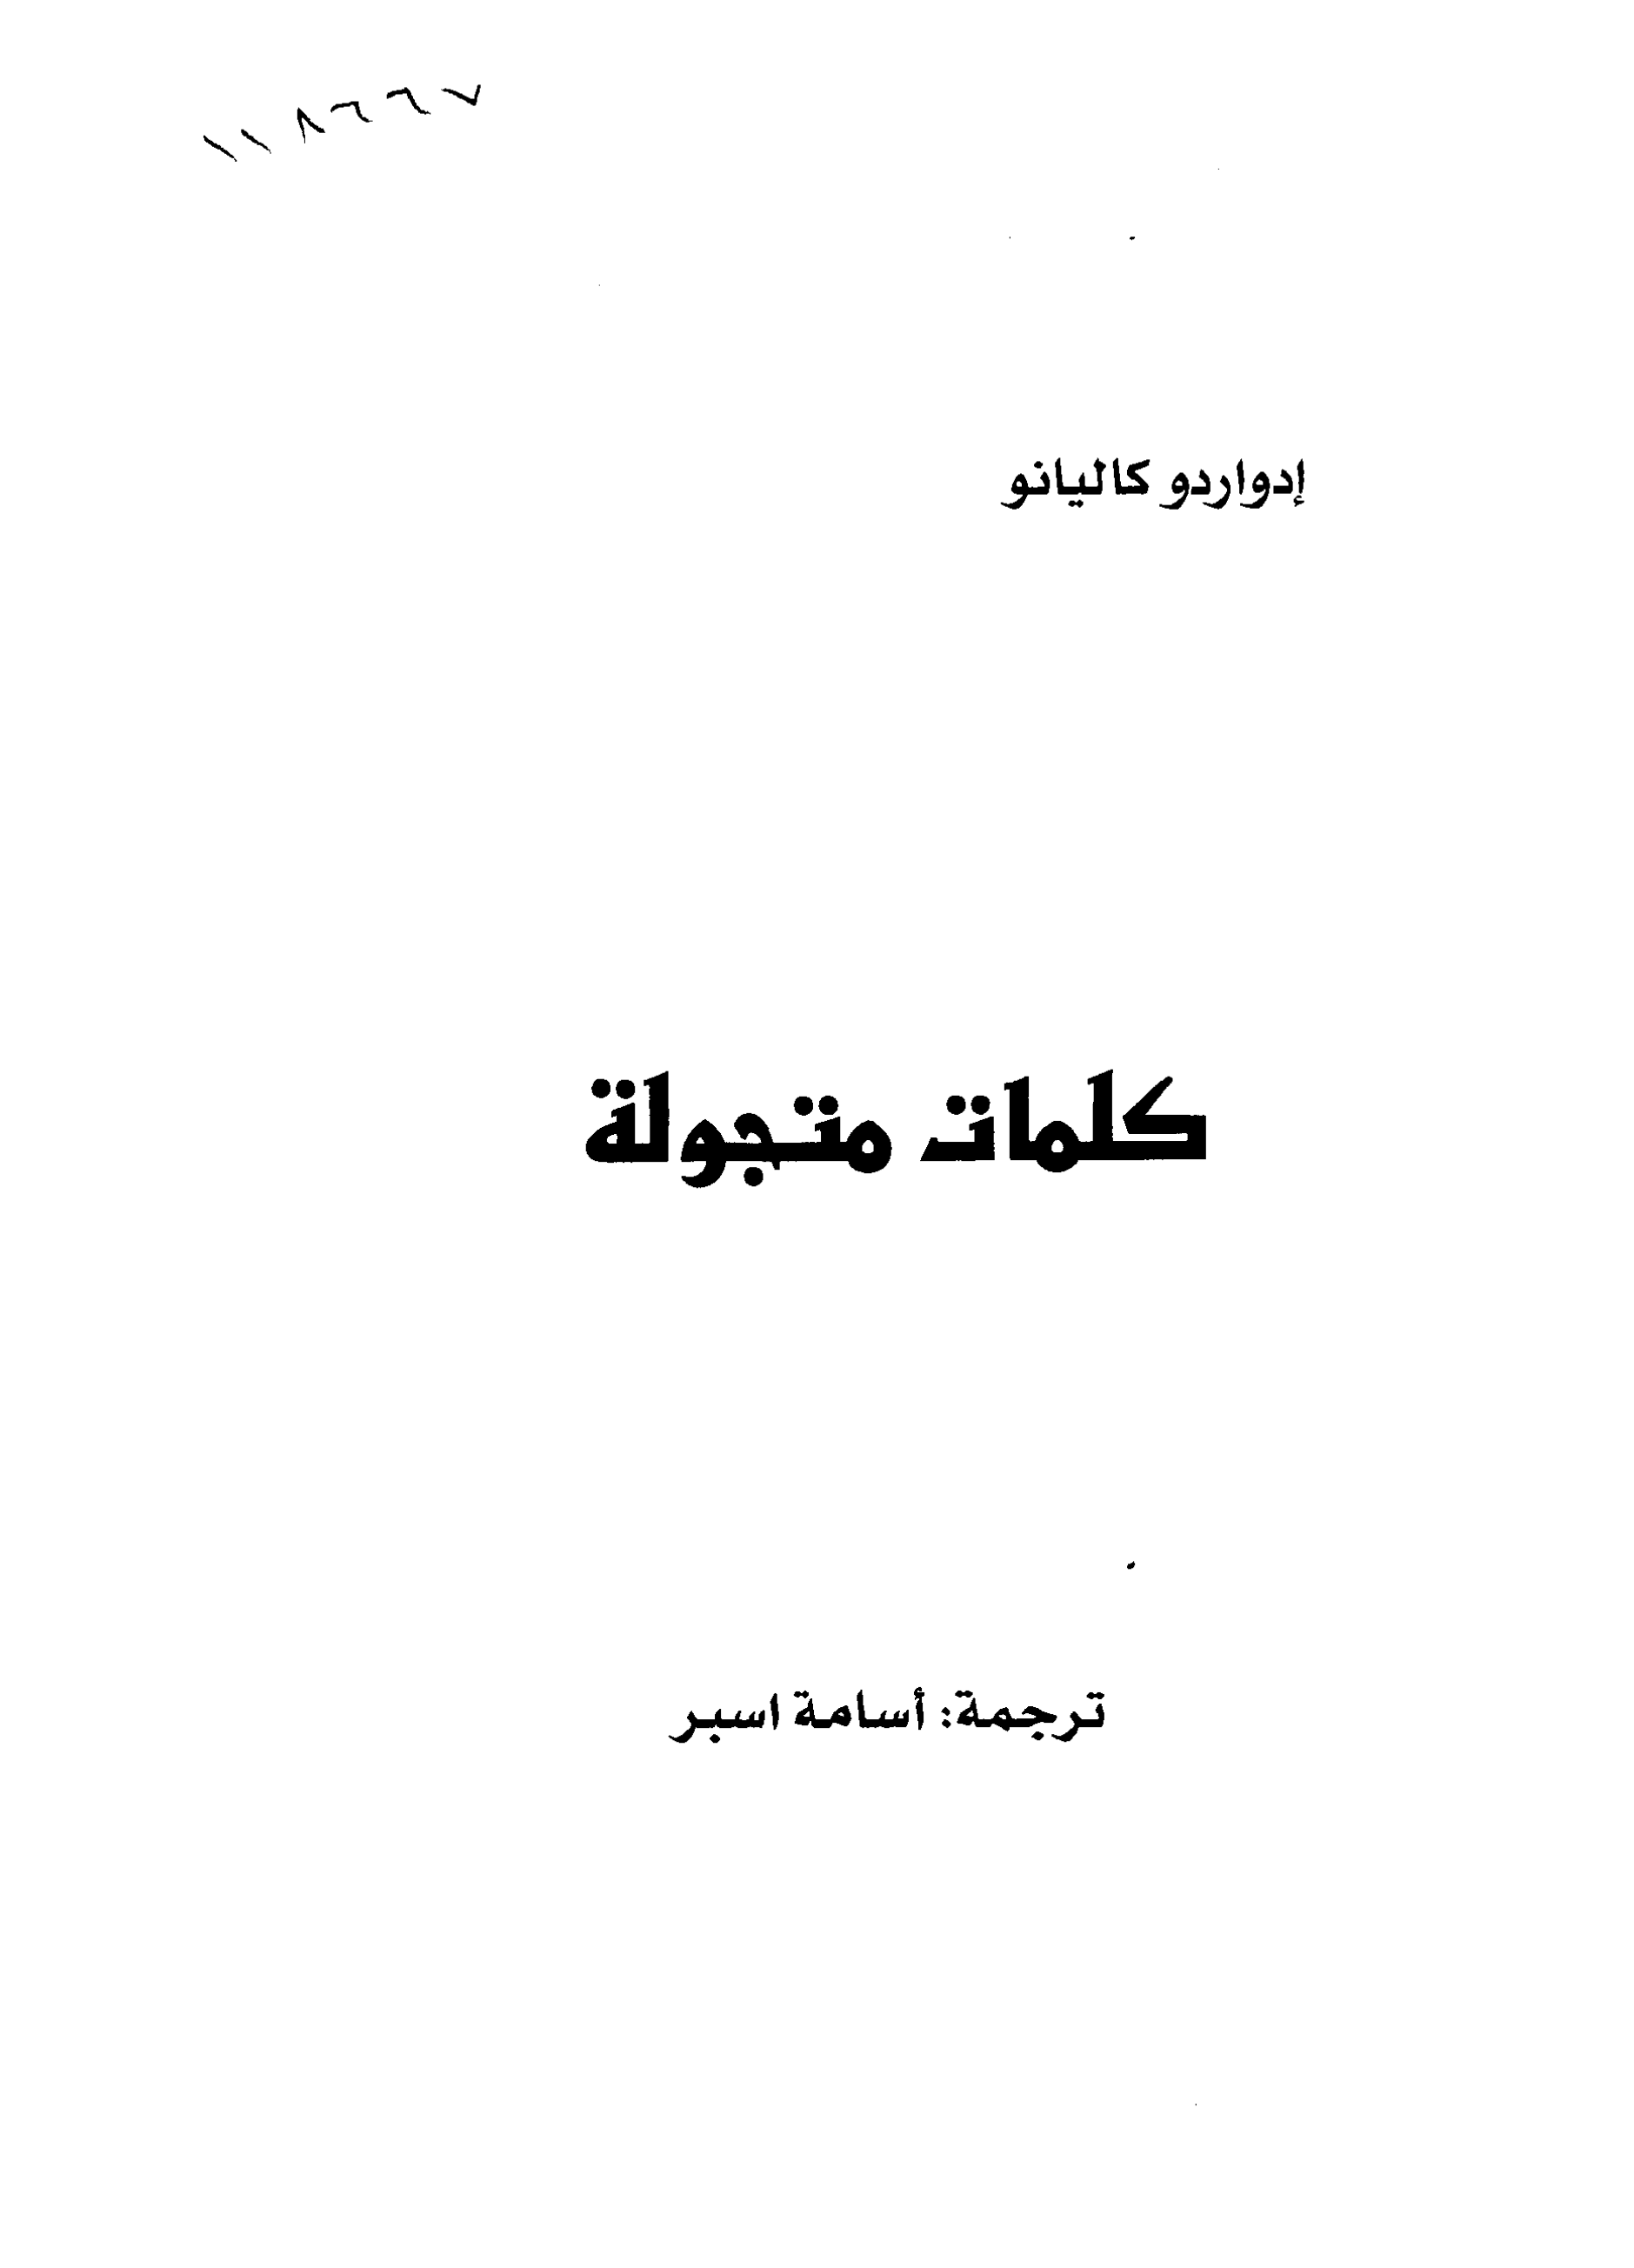 ١١٨٦٦٧
إدواردو كاليانو
كلمات متجولة
ترجمة: أسامة اسبر